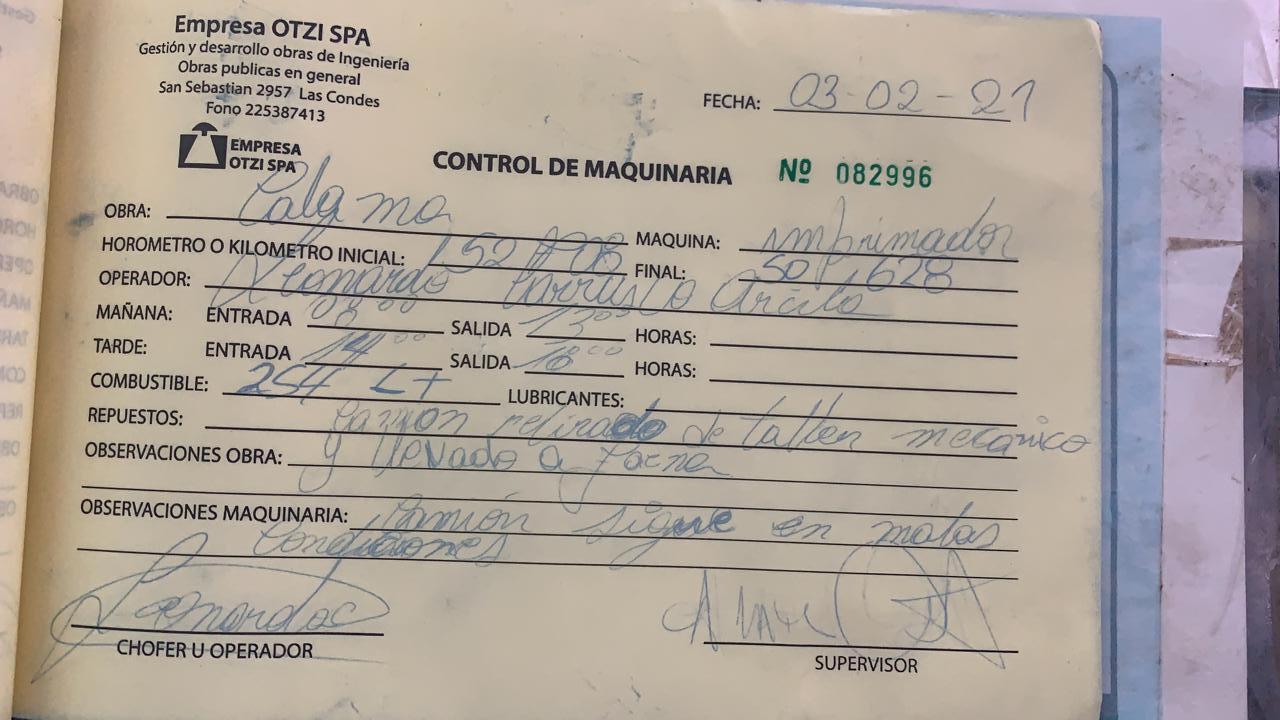 Empresa OTZI SPA
Gestión y desarrollo obras de Ingeniería
Obras publicas en general
San Sebastian 2957 Las Condes
Fono 225387413
EMPRESA
OTZI SPA
FECHA: 03-02-21
CONTROL DE MAQUINARIA Nº 082996
OBRA: Calama MAQUINA: imprimador
HOROMETRO O KILOMETRO INICIAL: FINAL:
OPERADOR: Leonardo Arcila
MAÑANA: ENTRADA 08:00 SALIDA 13:00 HORAS:
TARDE: ENTRADA 14:00 SALIDA 18:00 HORAS:
COMBUSTIBLE: 254 Lt LUBRICANTES:
REPUESTOS: Camion retirado de taller mecanico
OBSERVACIONES OBRA: y llevado a faena
OBSERVACIONES MAQUINARIA: Camión sigue en malas
Condiciones
Leonardo C
CHOFER U OPERADOR
SUPERVISOR